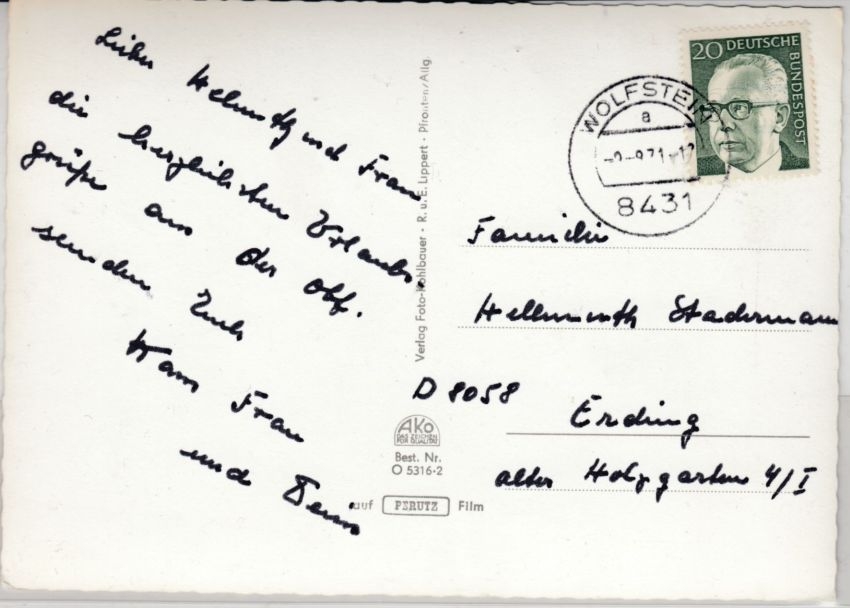 Lieber Helmuth und Frau
die herzlichsten Urlaubs-
grüße aus der Obf.
senden Euch
Hans Frau
und
Verlag Foto-Kohlbauer · R. u. E. Lippert · Pfronten/Allg.
AKO
DAS ZEICHEN
FÜR QUALITÄT
Best. Nr.
O 5316·2
auf PERUTZ Film
20 DEUTSCHE
BUNDESPOST
WOLFSTEIN
a
8431
Familie
Hellmuth Stadermann
D 8058
Erding
alter Holzgarten 4/I